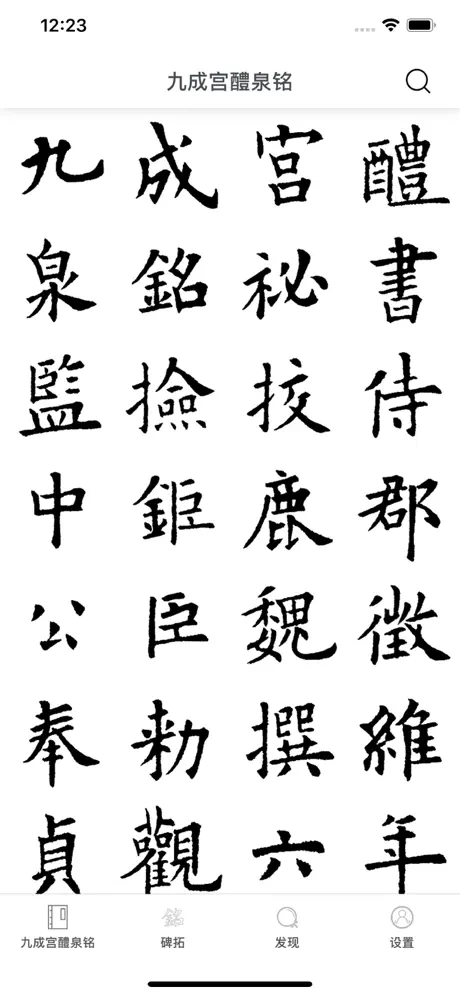 12:23
九成宫醴泉铭
九成宮醴
泉銘祕書
監撿挍侍
中鉅鹿郡
公臣魏徵
奉勑撰維
貞觀六年
九成宫醴泉铭
碑拓
发现
设置